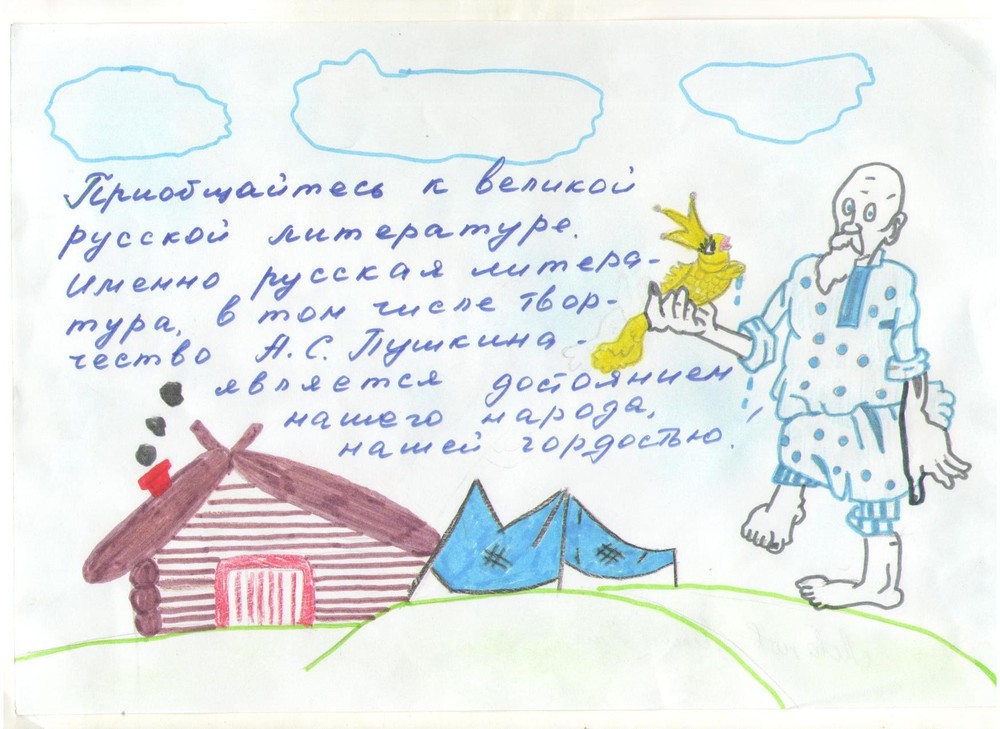 Приобщайтесь к великой
русской литературе.
Именно русская литера-
тура, в том числе твор-
чество А.С. Пушкина -
является достоянием
нашего народа,
нашей гордостью!